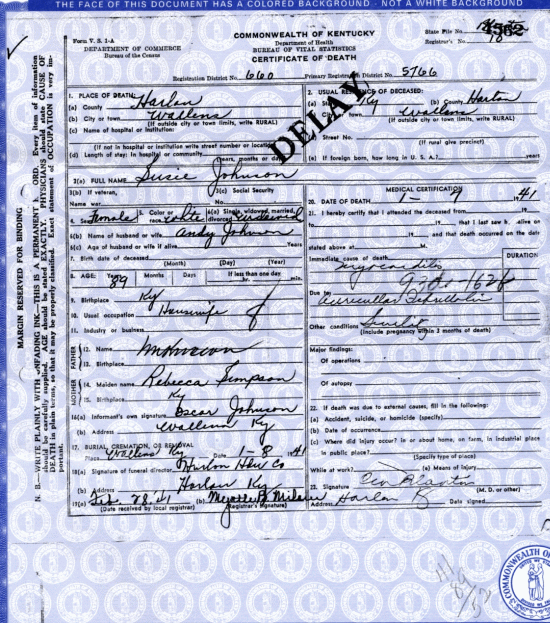 THE FACE OF THIS DOCUMENT HAS A COLORED BACKGROUND - NOT A WHITE BACKGROUND
Form V. S. 1-A
DEPARTMENT OF COMMERCE
Bureau of the Census
COMMONWEALTH OF KENTUCKY
Department of Health
BUREAU OF VITAL STATISTICS
CERTIFICATE OF DEATH
State File No. 4562
Registrar's No. 18
Registration District No. 660 Primary Registration District No. 5766
DELAY
1. PLACE OF DEATH:
(a) County Harlan
(b) City or town Wallens
(If outside city or town limits, write RURAL)
(c) Name of hospital or institution:
(If not in hospital or institution write street number or location)
(d) Length of stay: In hospital or community years, months or days
2. USUAL RESIDENCE OF DECEASED:
(a) State Ky (b) County Harlan
(c) City or town Wallens
(If outside city or town limits, write RURAL)
Street No.
(If rural give precinct)
(e) If foreign born, how long in U. S. A.? years
3(a) FULL NAME Susie Johnson
3(b) If veteran,
Name war
3(c) Social Security
No.
4. Sex Female 5. Color or race white 6(a) Single, widowed, married, divorced
6(b) Name of husband or wife Andy Johnson
6(c) Age of husband or wife if alive Years
7. Birth date of deceased
(Month) (Day) (Year)
8. AGE: Years 89 Months Days If less than one day
hr. min.
9. Birthplace Ky
10. Usual occupation Housewife
11. Industry or business
FATHER
12. Name unknown
13. Birthplace
MOTHER
14. Maiden name Rebecca Simpson
15. Birthplace Ky
16(a) Informant's own signature Oscar Johnson
(b) Address Wallens Ky
17. BURIAL, CREMATION, OR REMOVAL
Place Wallens Ky Date 1-8 1941
18(a) Signature of funeral director Harlan Hdw Co
(b) Address Harlan Ky
19(a) Feb. 28, 41 (b)
(Date received by local registrar) (Registrar's signature)
MEDICAL CERTIFICATION
20. DATE OF DEATH 1-9 1941
21. I hereby certify that I attended the deceased from 19
to 19 that I last saw h alive on
19 and that death occurred on the date
stated above at M.
DURATION
Immediate cause of death
myocarditis
Due to
auricular fibrillation
Other conditions Senility
(Include pregnancy within 3 months of death)
Major findings:
Of operations
Of autopsy
22. If death was due to external causes, fill in the following:
(a) Accident, suicide, or homicide (specify)
(b) Date of occurrence
(c) Where did injury occur? In or about home, on farm, in industrial place
in public place?
(Specify type of place)
While at work? (e) Means of injury
23. Signature
(M. D. or other)
Address Harlan Ky Date signed
MARGIN RESERVED FOR BINDING
N. B.—WRITE PLAINLY WITH UNFADING INK—THIS IS A PERMANENT RECORD. Every item of information
should be carefully supplied. AGE should be stated EXACTLY. PHYSICIANS should state CAUSE OF
DEATH in plain terms, so that it may be properly classified. Exact statement of OCCUPATION is very im-
portant.
COMMONWEALTH OF